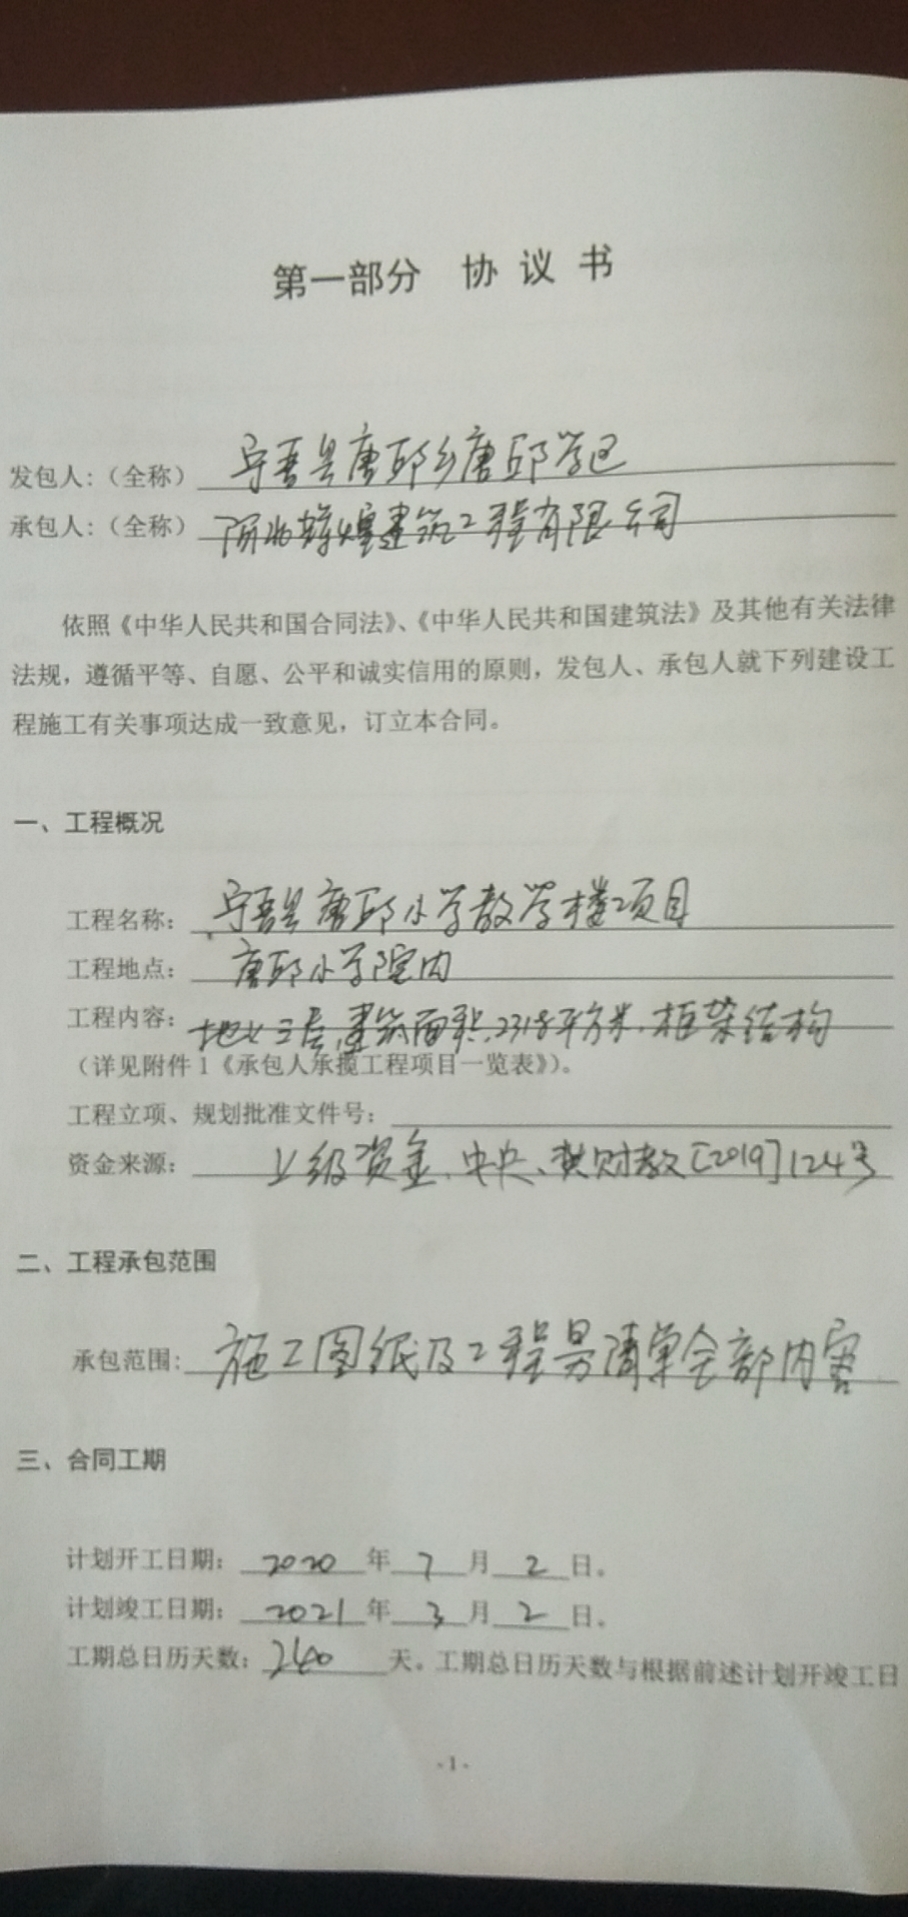 第一部分 协议书
发包人:（全称）宁晋县唐邱乡唐邱学区
承包人:（全称）辉煌建筑工程有限公司
依照《中华人民共和国合同法》、《中华人民共和国建筑法》及其他有关法律
法规，遵循平等、自愿、公平和诚实信用的原则，发包人、承包人就下列建设工
程施工有关事项达成一致意见，订立本合同。
一、工程概况
工程名称：宁晋县唐邱小学教学楼项目
工程地点：唐邱小学院内
工程内容：地上三层,建筑面积,2318平方米,框架结构
（详见附件1《承包人承揽工程项目一览表》）。
工程立项、规划批准文件号：
资金来源：上级资金、中央、冀财教[2019]124号
二、工程承包范围
承包范围:施工图纸及工程量清单全部内容
三、合同工期
计划开工日期：2020年7月2日。
计划竣工日期：2021年3月2日。
工期总日历天数：240天。工期总日历天数与根据前述计划开竣工日
-1-